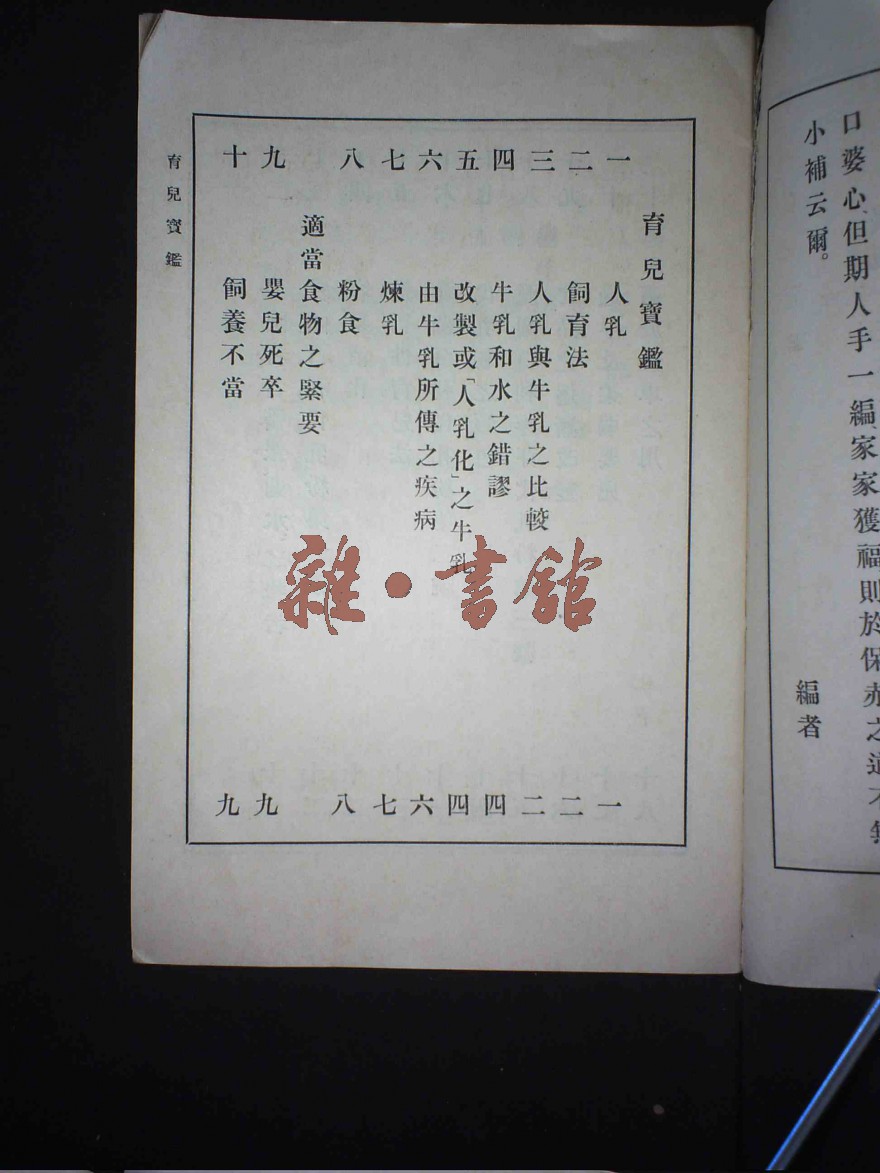 口婆心但期人手一編家家獲福則於保赤之道不無
小補云爾。
編者
育兒寶鑑
一 人乳 一
二 飼育法 二
三 人乳與牛乳之比較 二
四 牛乳和水之錯謬 四
五 改製或「人乳化」之牛乳 四
六 由牛乳所傳之疾病 六
七 煉乳 七
八 粉食 八
適當食物之緊要
九 嬰兒死卒 九
十 飼養不當 九
育兒寶鑑
雜·書館